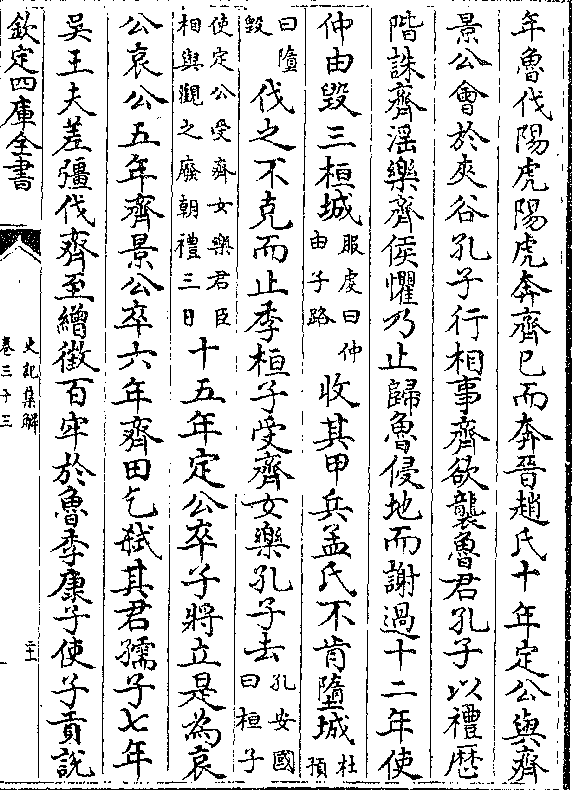 年魯伐陽虎陽虎奔齊已而奔晉趙氏十年定公與齊
景公會於夾谷孔子行相事齊欲襲魯君孔子以禮歴
階誅齊滛樂齊侯懼乃止歸魯侵地而謝過十二年使
仲由毀三桓城服䖍曰仲由子路收其甲兵孟氏不肯墮城杜預
曰墮毀伐之不克而止季桓子受齊女樂孔子去孔安國曰桓子
使定公受齊女樂君臣相與觀之廢朝禮三日十五年定公卒子將立是為哀
公哀公五年齊景公卒六年齊田乞弑其君孺子七年
吳王夫差彊伐齊至繒徵百牢於魯季康子使子貢說
欽定四庫全書
史記集解
卷三十三